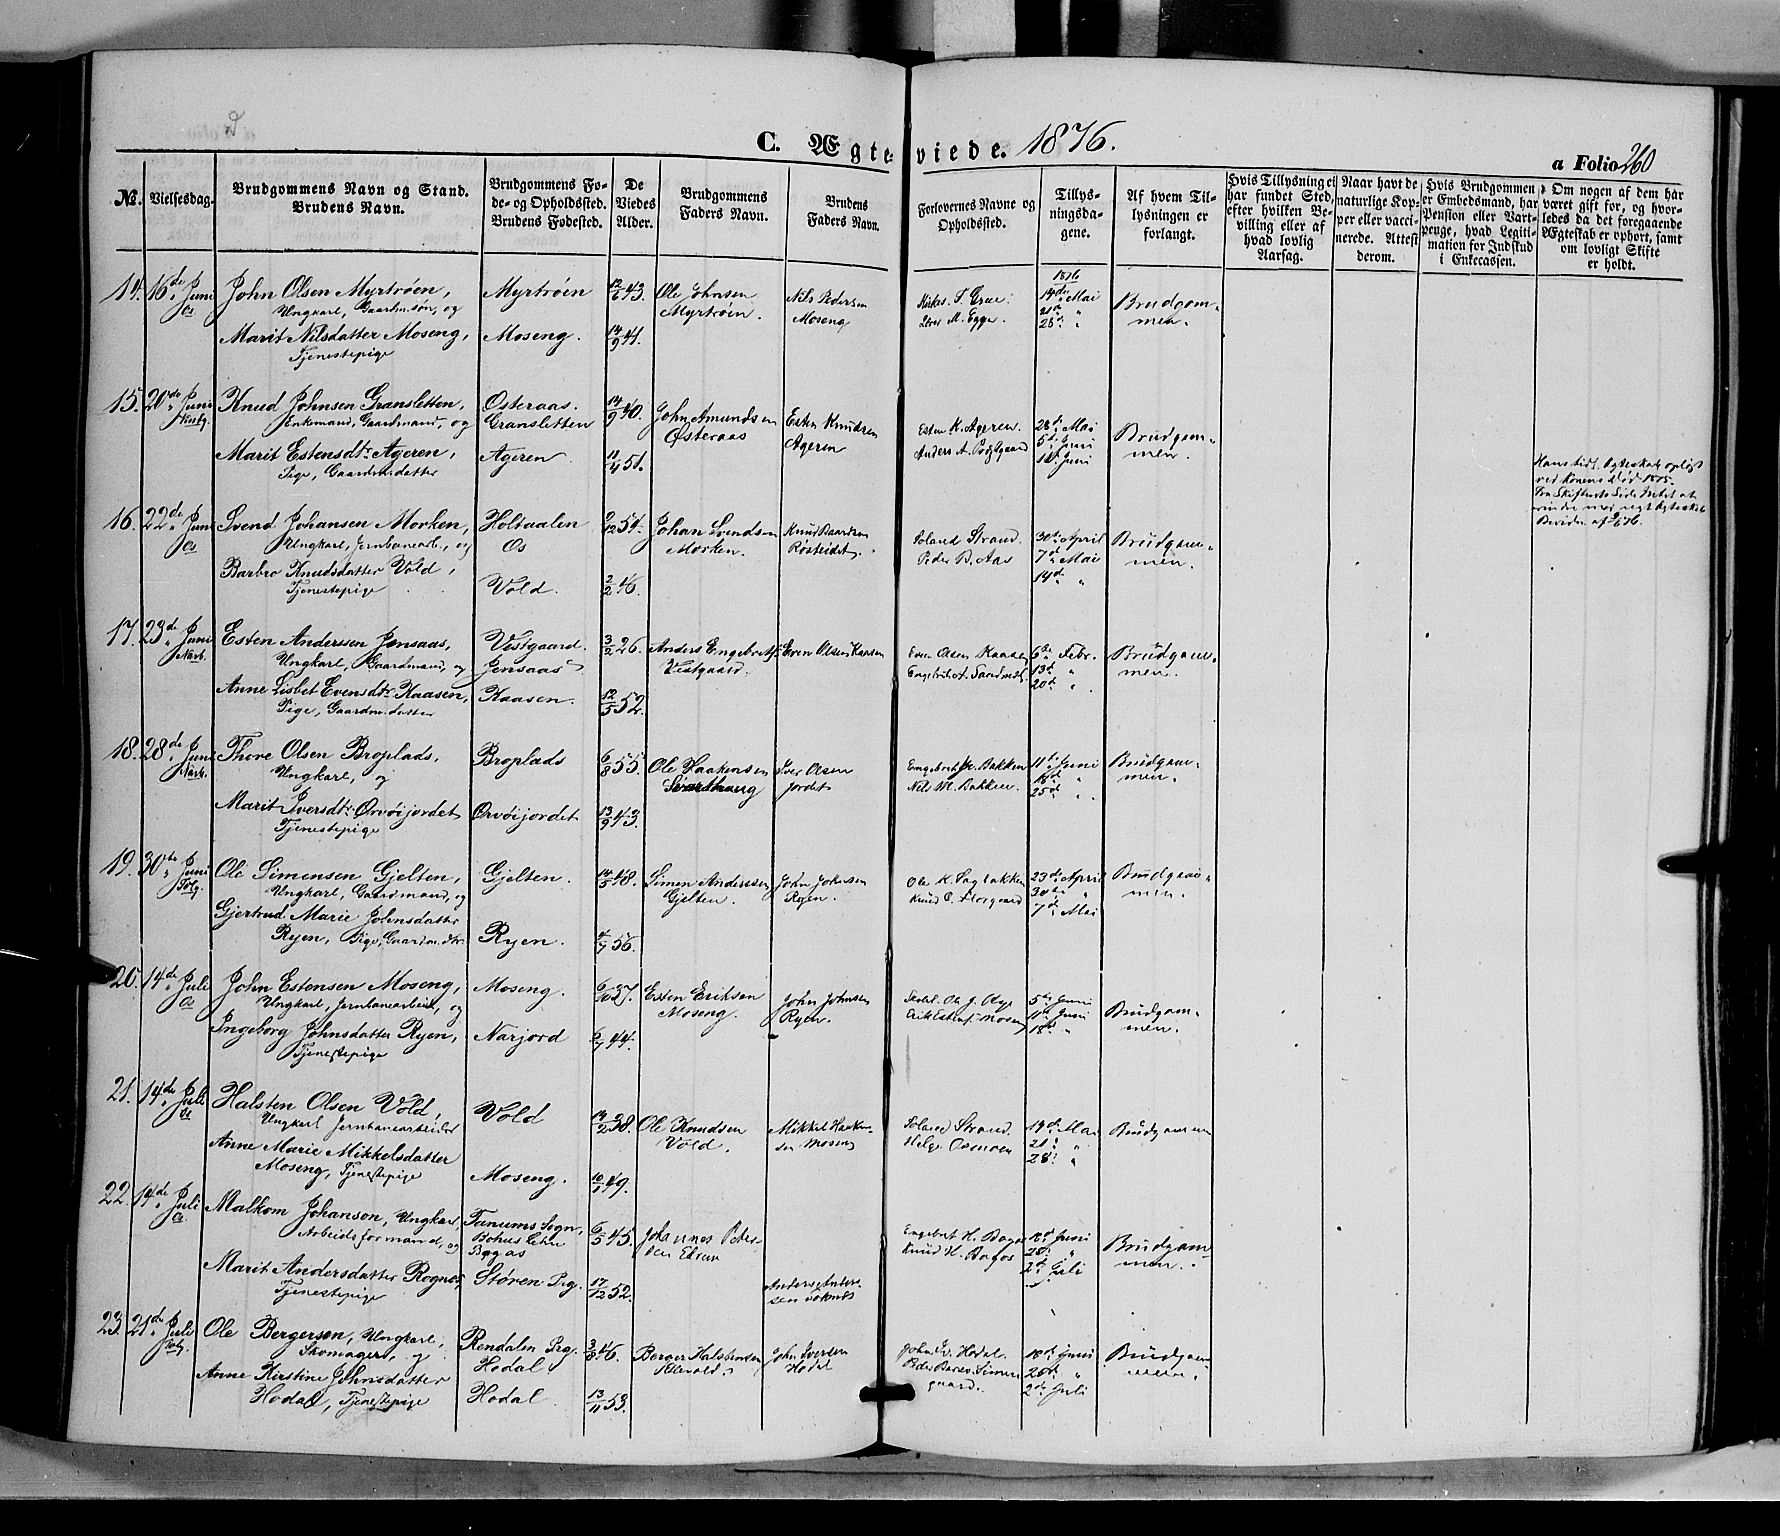 C. Ægteviede. 1876.
a Folio 260
No.
Vielsesdag.
Brudgommens Navn og Stand.
Brudens Navn.
Brudgommens Fo-
de- og Opholdsted.
Brudens Fødested.
De
Viedes
Alder.
Brudgommens
Faders Navn.
Brudens
Faders Navn.
Forlovernes Navne og
Opholdsted.
Tillys-
ningsda-
gene.
Af hvem Til-
lysningen er
forlangt.
Hvis Tillysning ei
har fundet Sted,
efter hvilken Be-
villing eller af
hvad lovlig
Aarsag.
Naar havt de
naturlige Kop-
per eller vacci-
nerede. Attest
derom.
Hvis Brudgommen
er Embedsmand, har
Pension eller Vart-
penge, hvad Legiti-
mation for Indskud
i Enkecassen.
Om nogen af dem har
været gift for, og hvor-
ledes da det foregaaende
Ægteskab er ophort, samt
om lovligt Skifte
er holdt.
14. 16de Juni Os
John Olsen Myrtrøen,
Ungkarl, Gaardm.søn, og
Marit Nilsdatter Moseng,
Tjenestepige
Myrtrøen
Moseng.
12/6 43.
14/9 41.
Ole Johnsen
Myrtrøen.
Nils Pedersen
Moseng
M. Egge.
1876
14de Mai
21d "
28d "
Brudgom-
men.
15. 20de Juni
Knud Johnsen Gransletten,
Enkemand, Gaardmand, og
Marit Estensdtr. Ageren,
Pige, Gaardm.datter
Osteraas.
Gransletten
Ageren
14/9 40.
11/4 51.
John Amundsen
Østeraas
Esten Knudsen
Ageren
Esten K. Ageren.
28d Mai
5d Juni
Brudgom-
men.
ved Konens Død 1875.
16. 22de Juni Os
Svend Johansen Morken,
Ungkarl, Jernbanearb., og
Barbro Knudsdatter Vold,
Tjenestepige
Holtaalen
Os
Vold.
54.
2/2 46.
Johan Svendsen
Morken.
Knud Baardsen
Røsteidet.
Soland Strand.
Peder B. Aas
30d April
7d Mai
14d "
Brudgom-
men.
17. 23de Juni Narb.
Esten Anderssen Jensaas,
Ungkarl, Gaardmand, og
Anne Lisbet Evensdtr. Kaasen,
Pige, Gaardm.datter
Vestgaard.
Jensaas
Kaasen.
3/2 26.
12/5 52.
Anders Engebretsen
Vestgaard.
Even Olsen Kaasen
Even Olsen Kaasen
6te Febr.
13d "
20d "
Brudgom-
men.
18. 28de Juni Narb.
Thore Olsen Broplads,
Ungkarl, og
Marit Iversdtr. Orvøijordet
Tjenestepige
Broplads
Orvøijordet
6/8 55.
13/9 43.
Ole Haakensen
Iver Olsen
Jordet
Engebret H. Bakken
Nils M. Bakken.
11te Juni
18d "
25d "
Brudgom-
men.
19. 30te Juni Tolg.
Ole Simensen Gjelten,
Ungkarl, Gaardmand, og
Gjertrud Marie Johnsdatter
Ryen, Pige, Gaardm.dtr.
Gjelten.
Ryen.
14/5 48.
56.
Simen Anderssen
Gjelten.
John Johnsen
Ryen.
23de April
30te "
7d Mai
Brudgom-
men.
20. 14de Juli Os
John Estensen Moseng,
Ungkarl, Jernbanearbeid., og
Ingeborg Johnsdatter Ryen,
Tjenestepige
Moseng.
Narjord
6/10 37.
44.
Esten Eriksen
Moseng.
John Johnsen
Ryen.
5te Juni
11te Juni
18d "
Brudgom-
men.
21. 14de Juli Os
Halsten Olsen Vold,
Ungkarl Jernbanearbeider
Anne Marie Mikkelsdatter
Moseng, Tjenestepige
Vold
Moseng.
14/2 38.
49.
Ole Knudsen
Vold.
Mikkel Haaken-
sen Moseng
Soland Strand.
Helge Osmoen
14d Mai
21d "
28d "
Brudgommen
22. 14de Juli Os
Malkom Johanson, Ungkarl,
Arbeidsformand, og
Marit Andersdatter Rognes,
Tjenestepige
Tanums Sogn,
Bohus Lehn
Støren Prg.
6/5 45.
17/12 52.
Johannes Peter-
sen
Anders Ander-
sen
Engebret H. Bagaas
Knud H.
18d Juni
2d Juli
Brudgom-
men.
23. 21de Juli Tolg.
Ole Bergersen, Ungkarl,
Skomager, og
Anne Kirstine Johnsdatter
Hodal, Tjenestepige
Rendalen Prg.
Hodal
Hodal.
3/8 46.
13/11 53.
Berger Halstensen
John Iversen
Hodal
John Iv. Hodal.
18d Juni
2de Juli
Brudgom-
men.